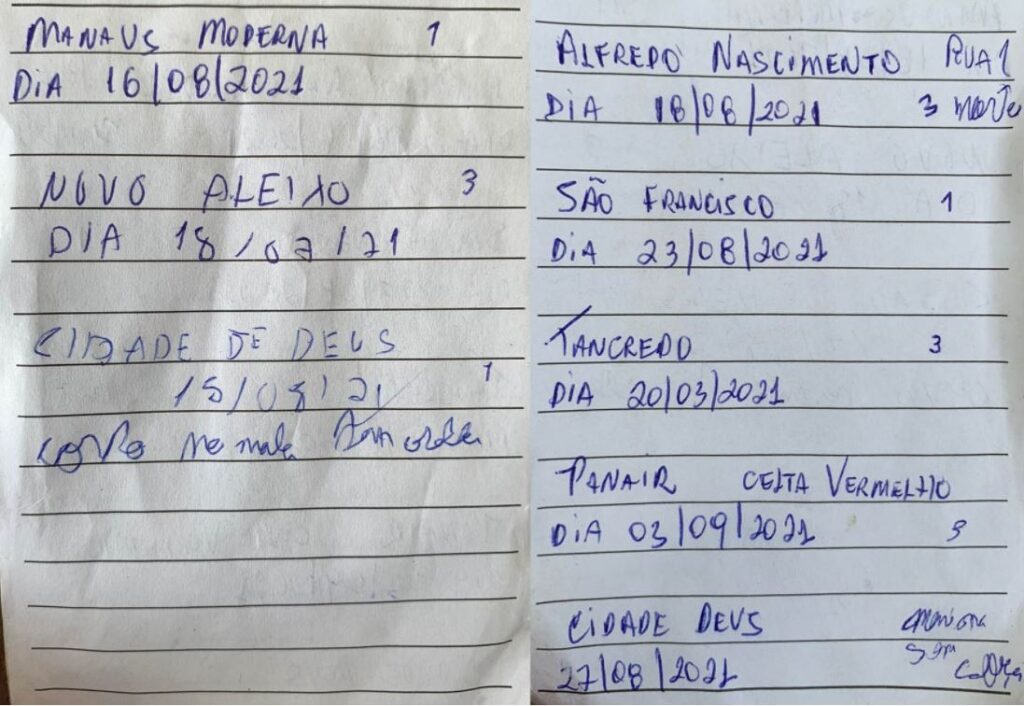 MANAUS MODERNA 1
DIA 16/08/2021
NOVO ALEIXO 3
DIA 18/07/21
CIDADE DE DEUS
15/08/21 1
CORPO
ALFREDO NASCIMENTO RUA 1
DIA 18/08/2021 3 MORTE
SÃO FRANCISCO 1
DIA 23/08/2021
TANCREDO 3
DIA 20/03/2021
PANAIR CEITA VERMELHO
DIA 03/09/2021 3
CIDADE DEUS
27/08/2021